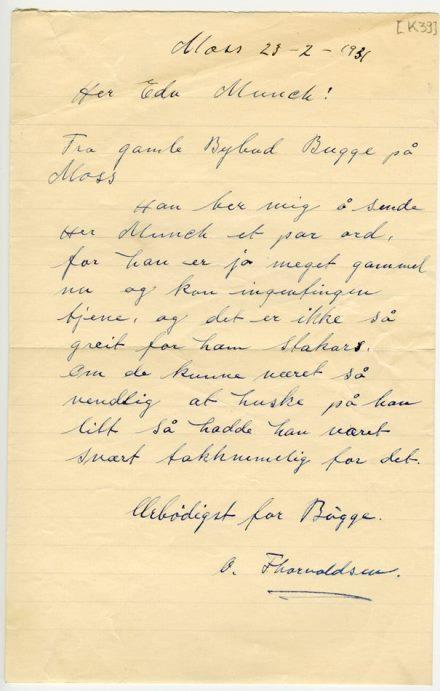 [K39]
Moss 23-2-1931
Her Edv Munch!
Fra gamle Bybud Bugge på
Moss
Han ber mig å sende
Her Munch et par ord,
for han er jo meget gammel
nu og kan ingenting
tjene, og det er ikke så
greit for ham stakars.
Om de kunne været så
vendlig at huske på han
litt så hadde han været
svært takknemelig for det.
Ærbødigst for Bugge.
O. Thorvaldsen.